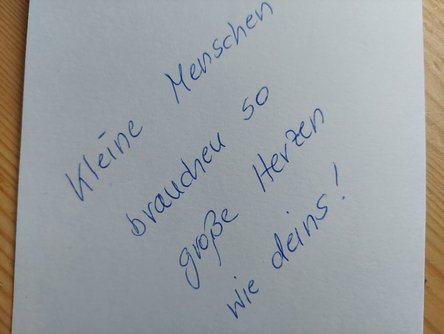 Kleine Menschen
brauchen so
große Herzen
wie deins!